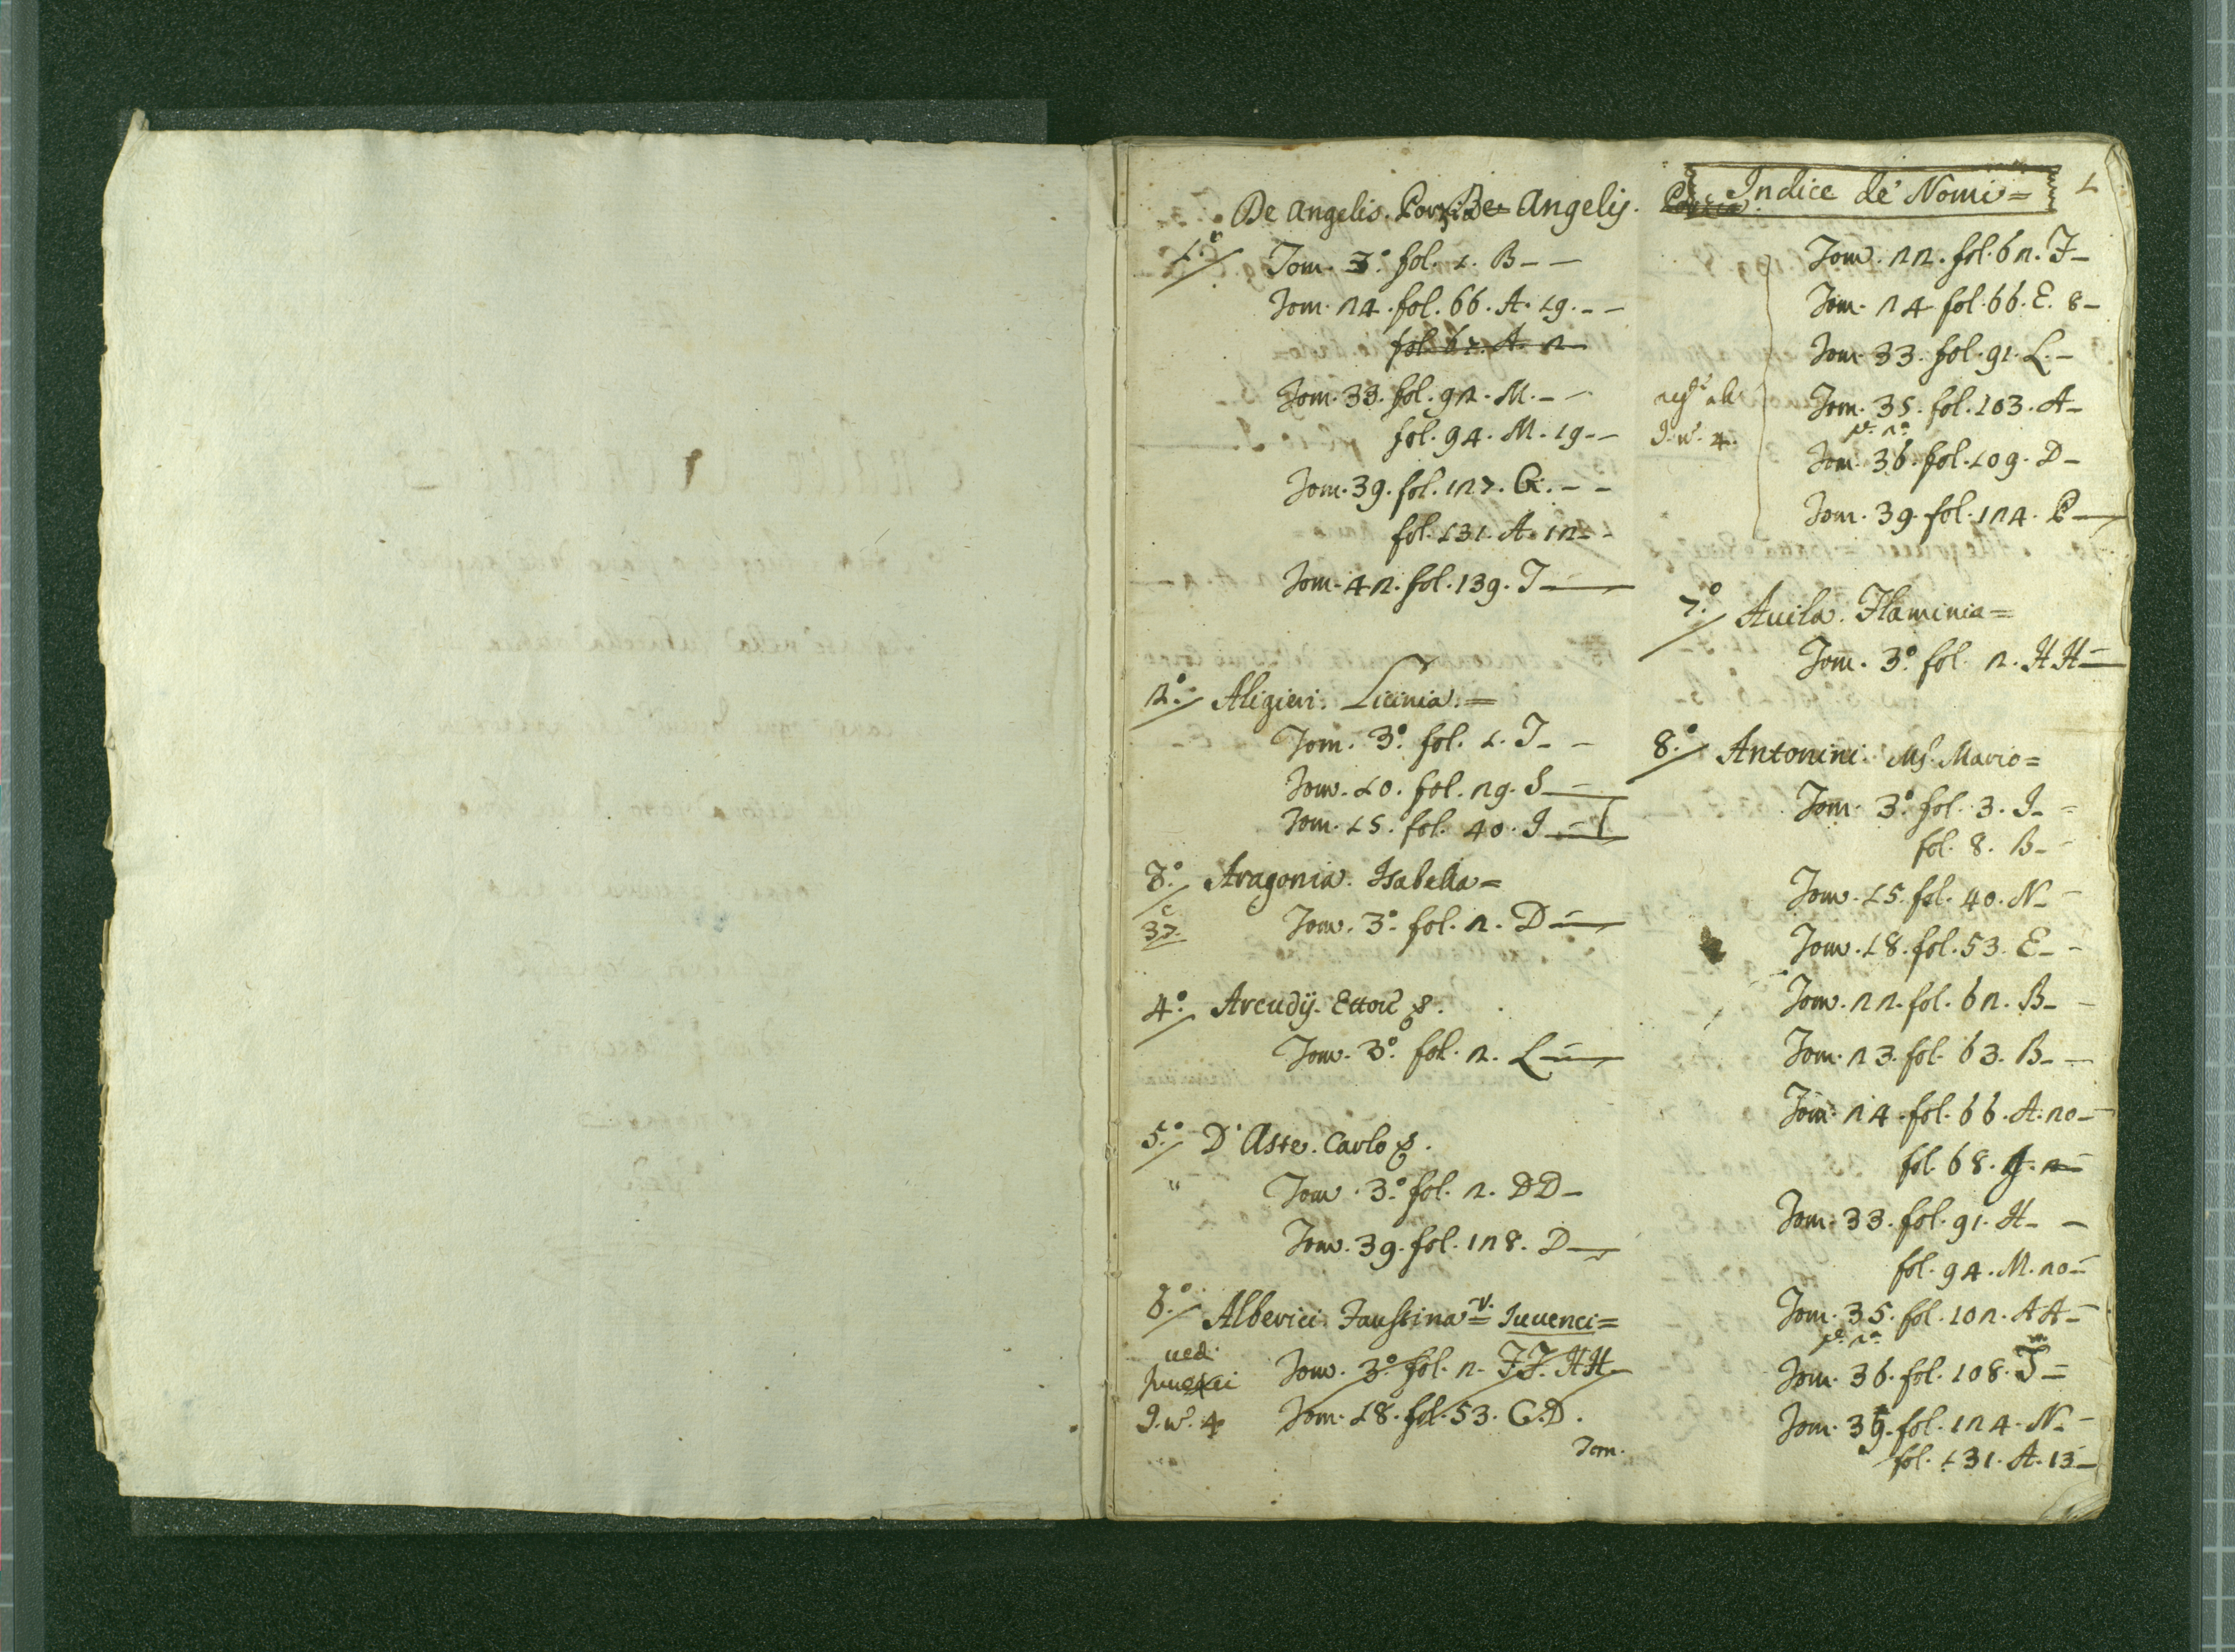 Indice de' Nomi=
1
De Angelis. Porzia De Angelis. Porzia
1.º Tom. 3.º fol. 1. B_ _
Tom. 24. fol. 66. A. 19. _ _
fol. 67. A. 2
Tom. 33. fol. 92. M. _ _
fol. 94. M. 19. _
Tom. 39. fol. 127. G. _ _
fol. 131. A. 12 _
Tom. 42. fol. 139. T _
2.º Aligieri. Licinia. =
Tom. 3.º fol. 1. T _ _
Tom. 10. fol. 29. S _
Tom. 15. fol. 40. I _
3.º Aragonia. Isabella =
37. Tom. 3.º fol. 2. D _
4.º Arcudij. Ettore
Tom. 3.º fol. 2. L _
5.º D'Aste. Carlo
Tom. 3.º fol. 2. DD _
Tom. 39. fol. 128. D _
6.º Alberici. Faustina = v. Iuuenci =
ued. Tom. 3.º fol. 2. FF. HH _
Iuuenci
I. nº. 4 Tom. 18. fol. 53. C.D.
Tom.
Tom. 22. fol. 62. F _
Tom. 24. fol. 66. E. 8 _
Tom. 33. fol. 91. L. _
Tom. 35. fol. 103. A _
I. nº. 4.
pe. 2a.
Tom. 36. fol. 109. D _
Tom. 39. fol. 124. P _
7.º Auila. Flaminia =
Tom. 3.º fol. 2. HH _
8.º Antonini. Ms. Mario =
Tom. 3.º fol. 3. I _
fol. 8. B _
Tom. 15. fol. 40. N _
Tom. 18. fol. 53. E _
Tom. 22. fol. 62. B _
Tom. 23. fol. 63. B _
Tom. 24. fol. 66. A. 20 _
fol. 68. 2
Tom. 33. fol. 91. H _
fol. 94. M. 20 _
Tom. 35. fol. 102. AA _
pe. 2a.
Tom. 36. fol. 108. T =
Tom. 39. fol. 124. N _
fol. 131. A. 13 _